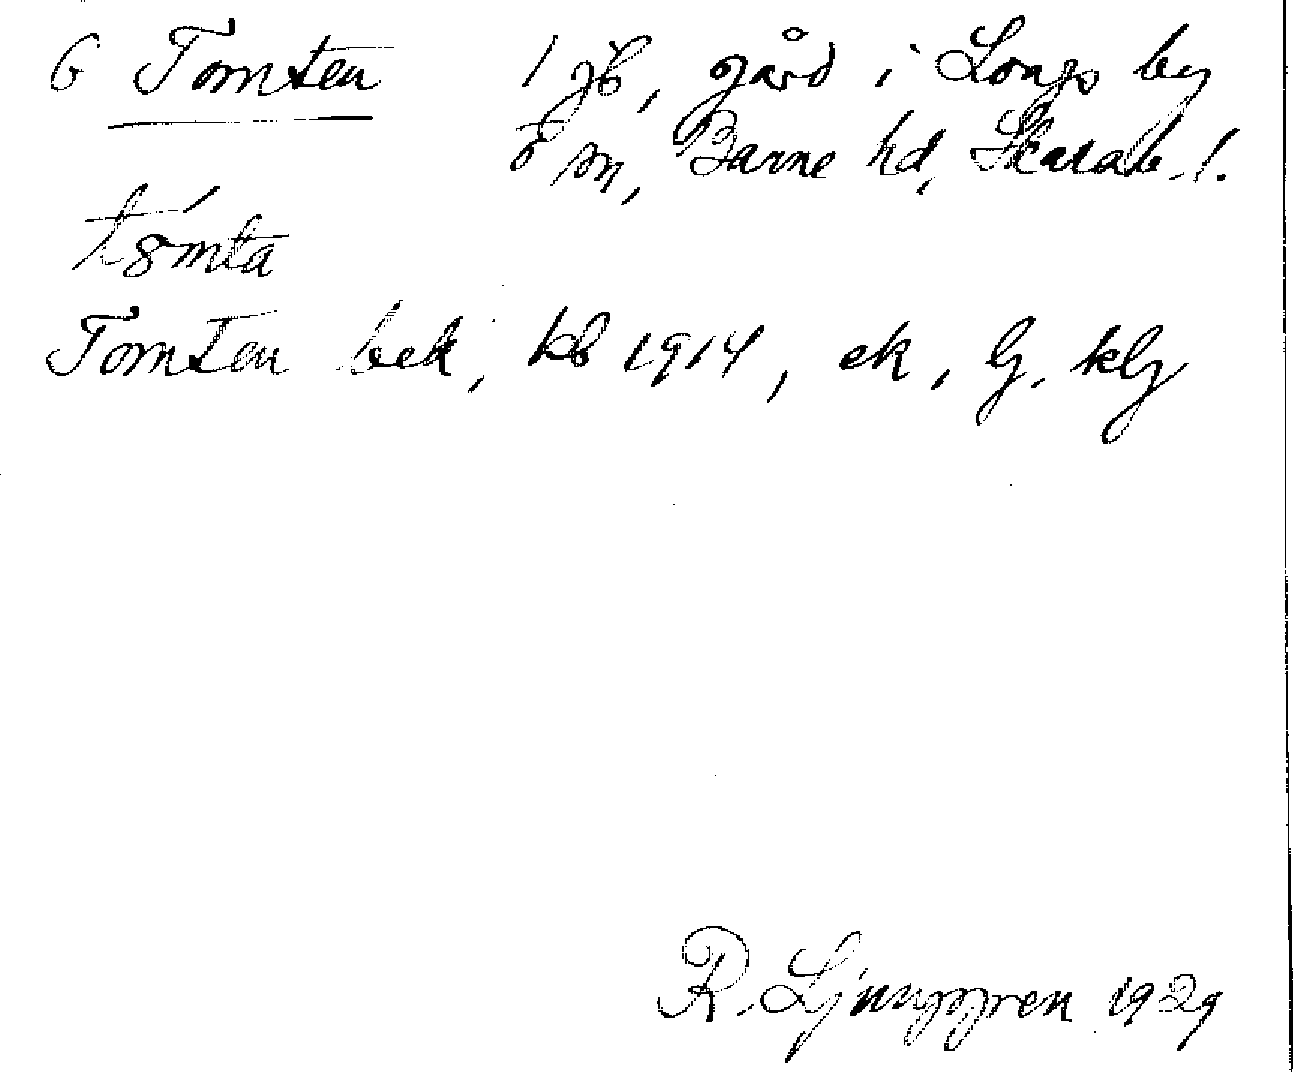 6 Tomten 1 jb, gård i Longs by
o m, Barne hd, Skarab. l.
Tomten bek, kb 1914, ek, lj, klj
R. Ljunggren 1929